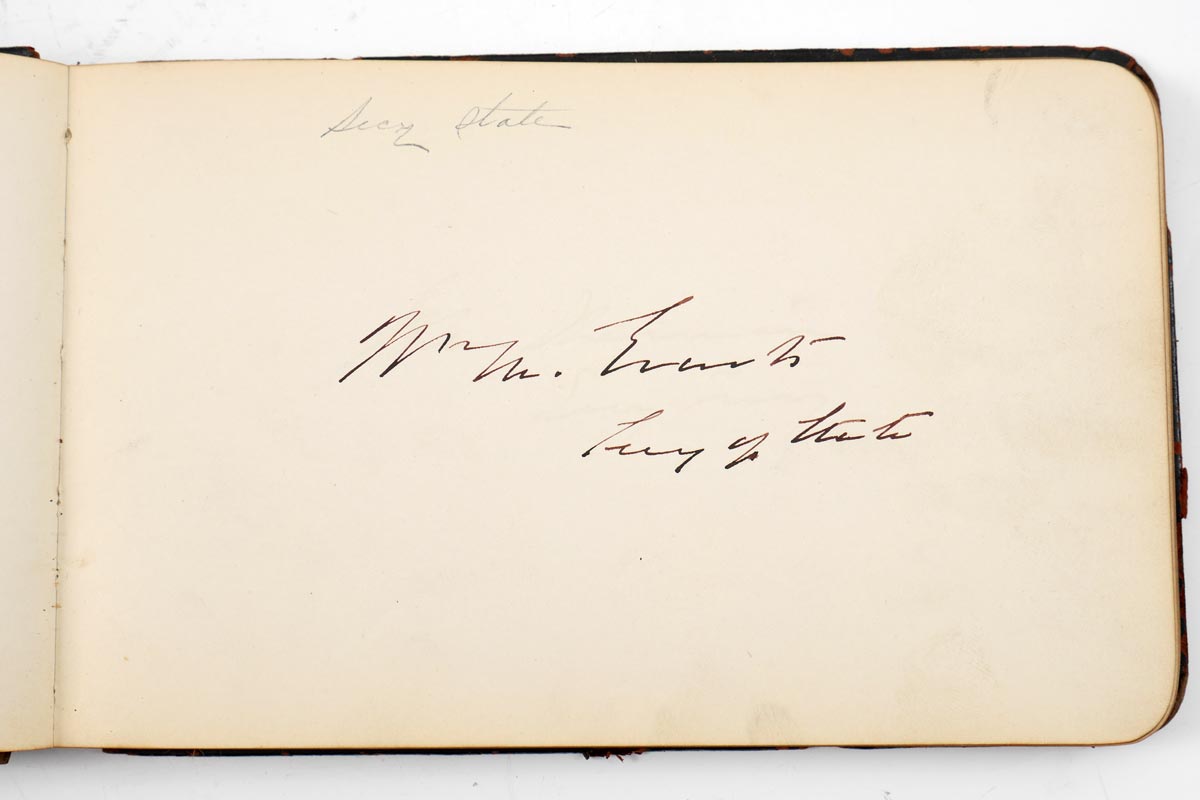 Secy State
Wm M. Evarts
Secy of State